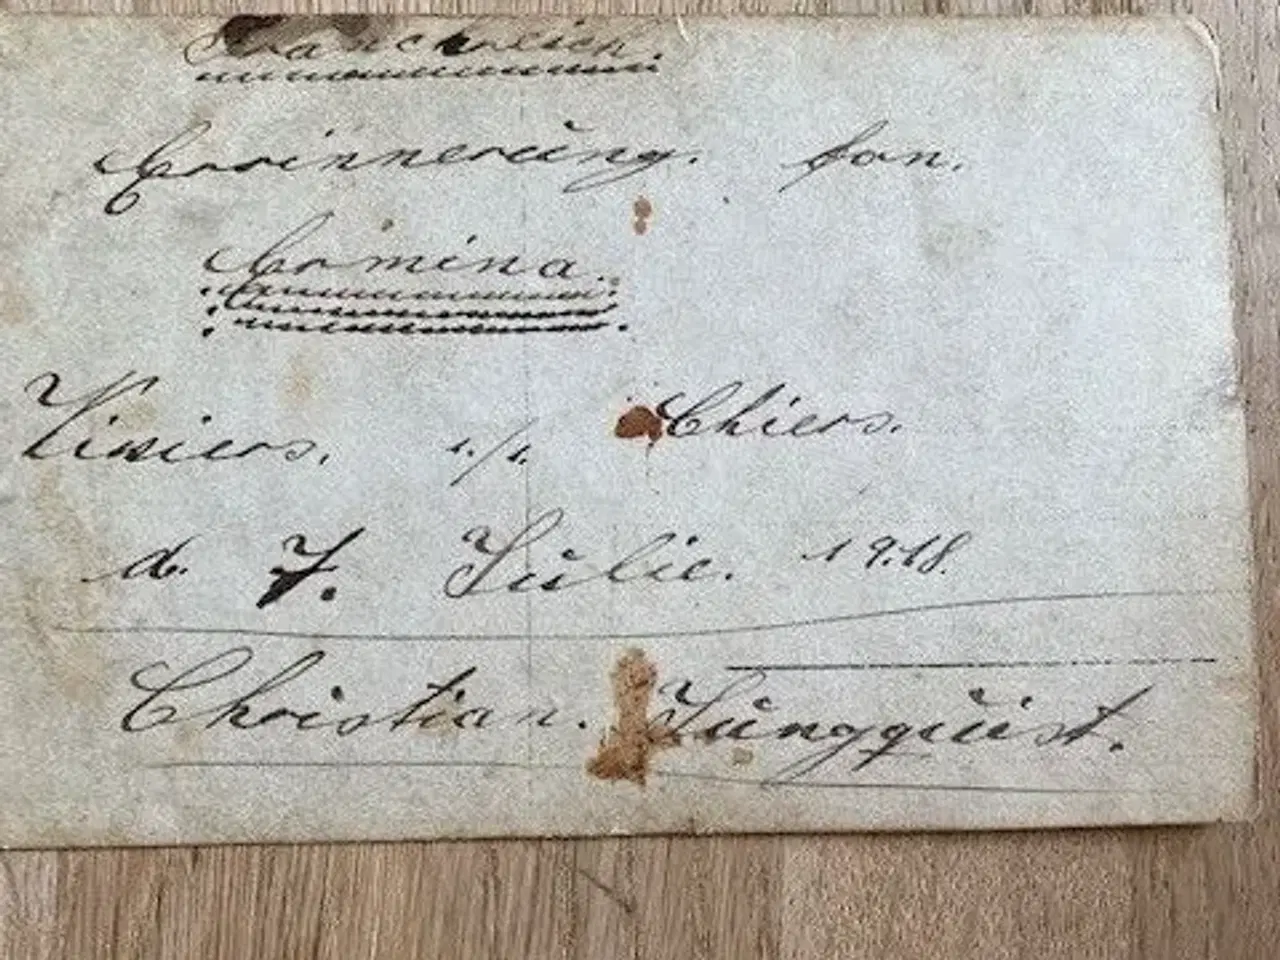 Franckreich.
Errinnerüng. fon.
Ermina.
Viviers. s./s. Chiers.
d. 7. Jülie. 1918.
Christian. Jüngqüist.